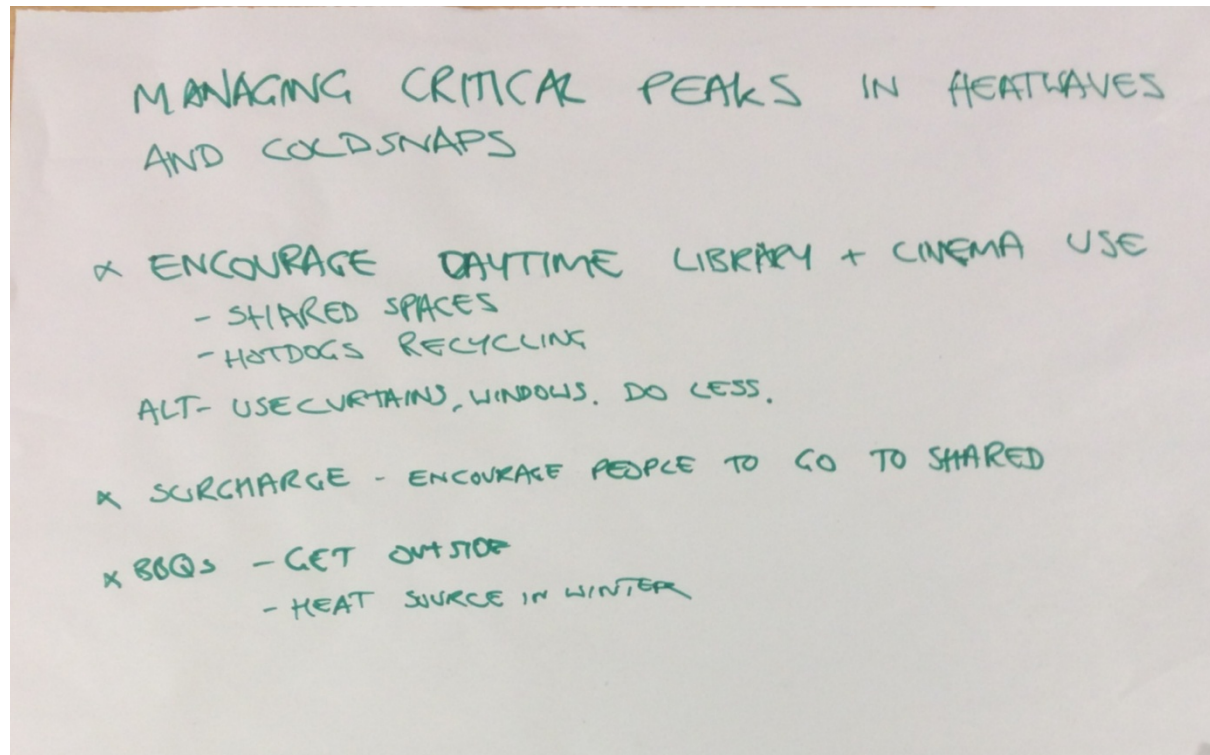 MANAGING CRITICAL PEAKS IN HEATWAVES
AND COLDSNAPS
× ENCOURAGE DAYTIME LIBRARY + CINEMA USE
- SHARED SPACES
- HOTDOGS RECYCLING
ALT- USE CURTAINS, WINDOWS. DO LESS.
× SURCHARGE - ENCOURAGE PEOPLE TO GO TO SHARED
× BBQs - GET OUTSIDE
- HEAT SOURCE IN WINTER